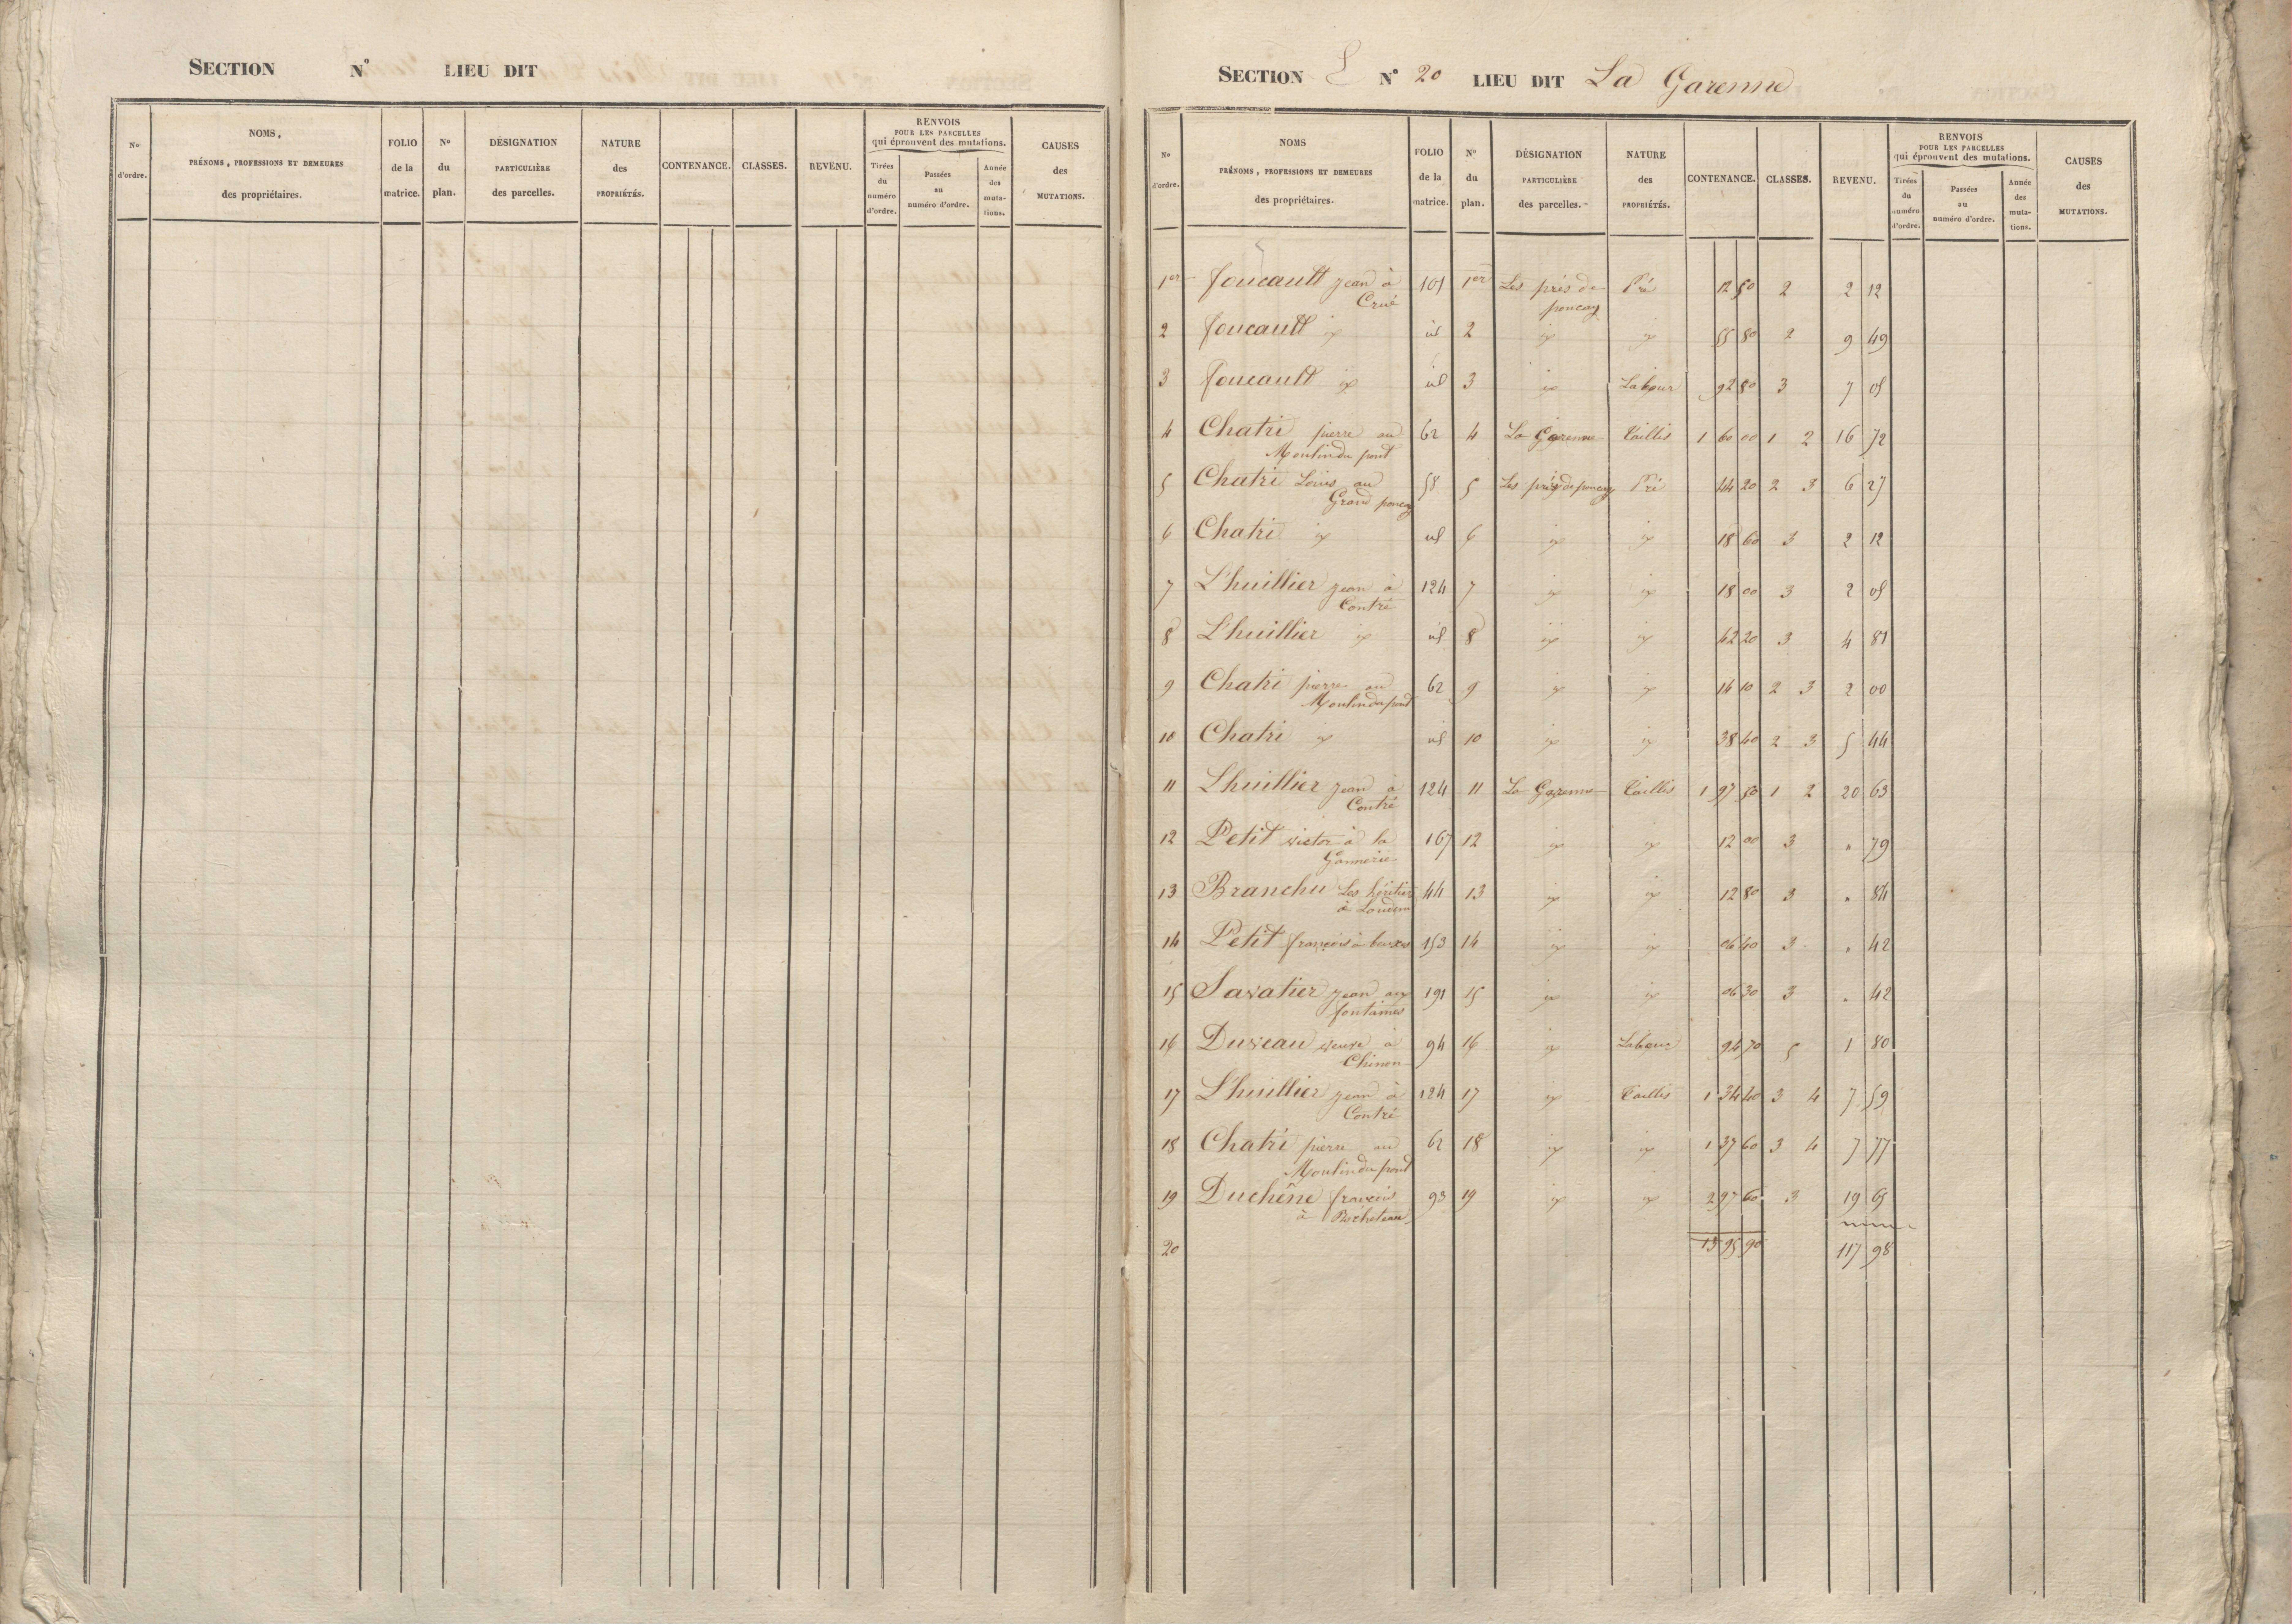 SECTION N° LIEU DIT
N°
d'ordre.
NOMS,
PRÉNOMS, PROFESSIONS ET DEMEURES
des propriétaires.
FOLIO
de la
matrice.
N°
du
plan.
DÉSIGNATION
PARTICULIÈRE
des parcelles.
NATURE
des
PROPRIÉTÉS.
CONTENANCE.
CLASSES.
REVENU.
RENVOIS
POUR LES PARCELLES
qui éprouvent des mutations.
Tirées
du
numéro
d'ordre.
Passées
au
numéro d'ordre.
Année
des
muta-
tions.
CAUSES
des
MUTATIONS.
SECTION E N° 20 LIEU DIT La Garenne
N°
d'ordre.
NOMS
PRÉNOMS, PROFESSIONS ET DEMEURES
des propriétaires.
FOLIO
de la
matrice.
N°
du
plan.
DÉSIGNATION
PARTICULIÈRE
des parcelles.
NATURE
des
PROPRIÉTÉS.
CONTENANCE.
CLASSES.
REVENU.
RENVOIS
POUR LES PARCELLES
qui éprouvent des mutations.
Tirées
du
numéro
d'ordre.
Passées
au
numéro d'ordre.
Année
des
muta-
tions.
CAUSES
des
MUTATIONS.
1er foucault jean à 101 1er Les prés de Pré 12 50 2 2 12
Crué poncay
2 foucault id 2 55 80 2 9 49
3 foucault id 3 Labour 92 80 3 7 05
4 Chatri pierre au 62 4 La Garenne Taillis 1 60 00 1 2 16 72
Moulin du pont
5 Chatri Louis au 58 5 Les prés de poncay Pré 44 20 2 3 6 27
Grand poncay
6 Chatri id 6 18 60 3 2 12
7 L'huillier jean à 124 7 18 00 3 2 05
Contré
8 L'huillier id 8 42 20 3 4 81
9 Chatri pierre au 62 9 14 10 2 3 2 00
Moulin du pont
10 Chatri id 10 38 40 2 3 5 44
11 Lhuillier jean à 124 11 La Garenne Taillis 1 97 50 1 2 20 63
Contré
12 Petit victor à la 167 12 12 00 3 " 79
Gannerie
13 Branchu Les héritiers 44 13 12 80 3 " 84
à Loudun
14 Petit françois à 153 14 06 40 3 " 42
15 Savatier jean aux 191 15 06 30 3 " 42
fontaines
16 Duveau veuve à 94 16 Labour 94 70 5 1 80
Chinon
17 L'huillier jean à 124 17 Taillis 1 34 40 3 4 7 59
Contré
18 Chatri pierre au 62 18 1 37 60 3 4 7 77
Moulin du pont
19 Duchêne françois 93 19 2 97 60 3 19 65
à Rocheteau
20 13 95 90 117 98